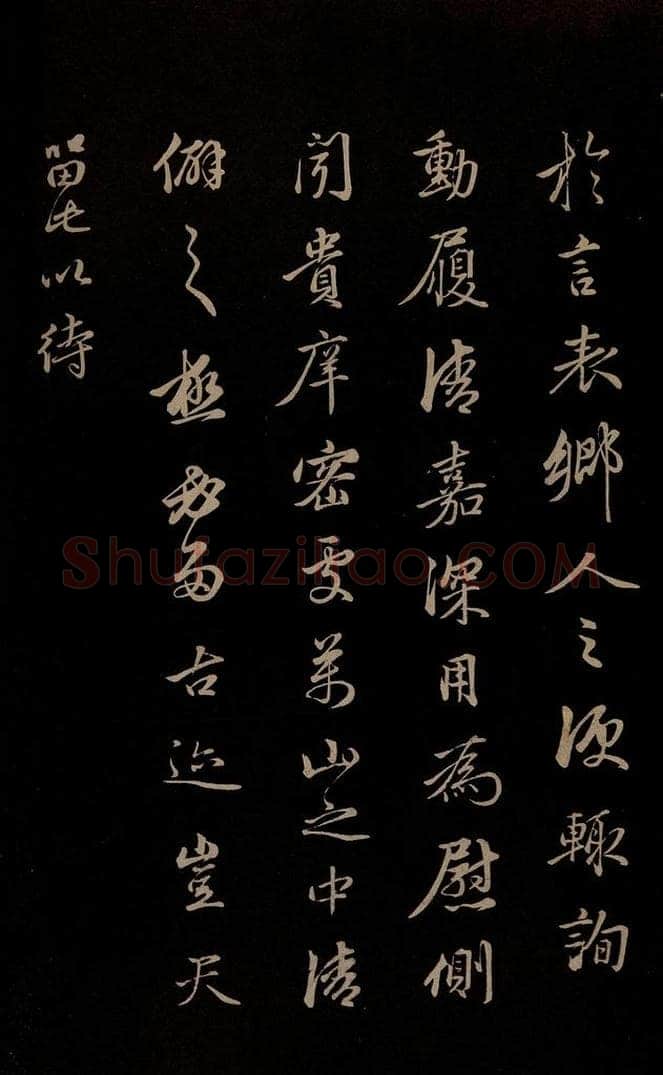 於言表鄉人之便輒詢
動履清嘉深用為慰側
聞貴庠密處萬山之中清
僻之極必多古迹豈天
留此以待
ShufaziLiao.COM